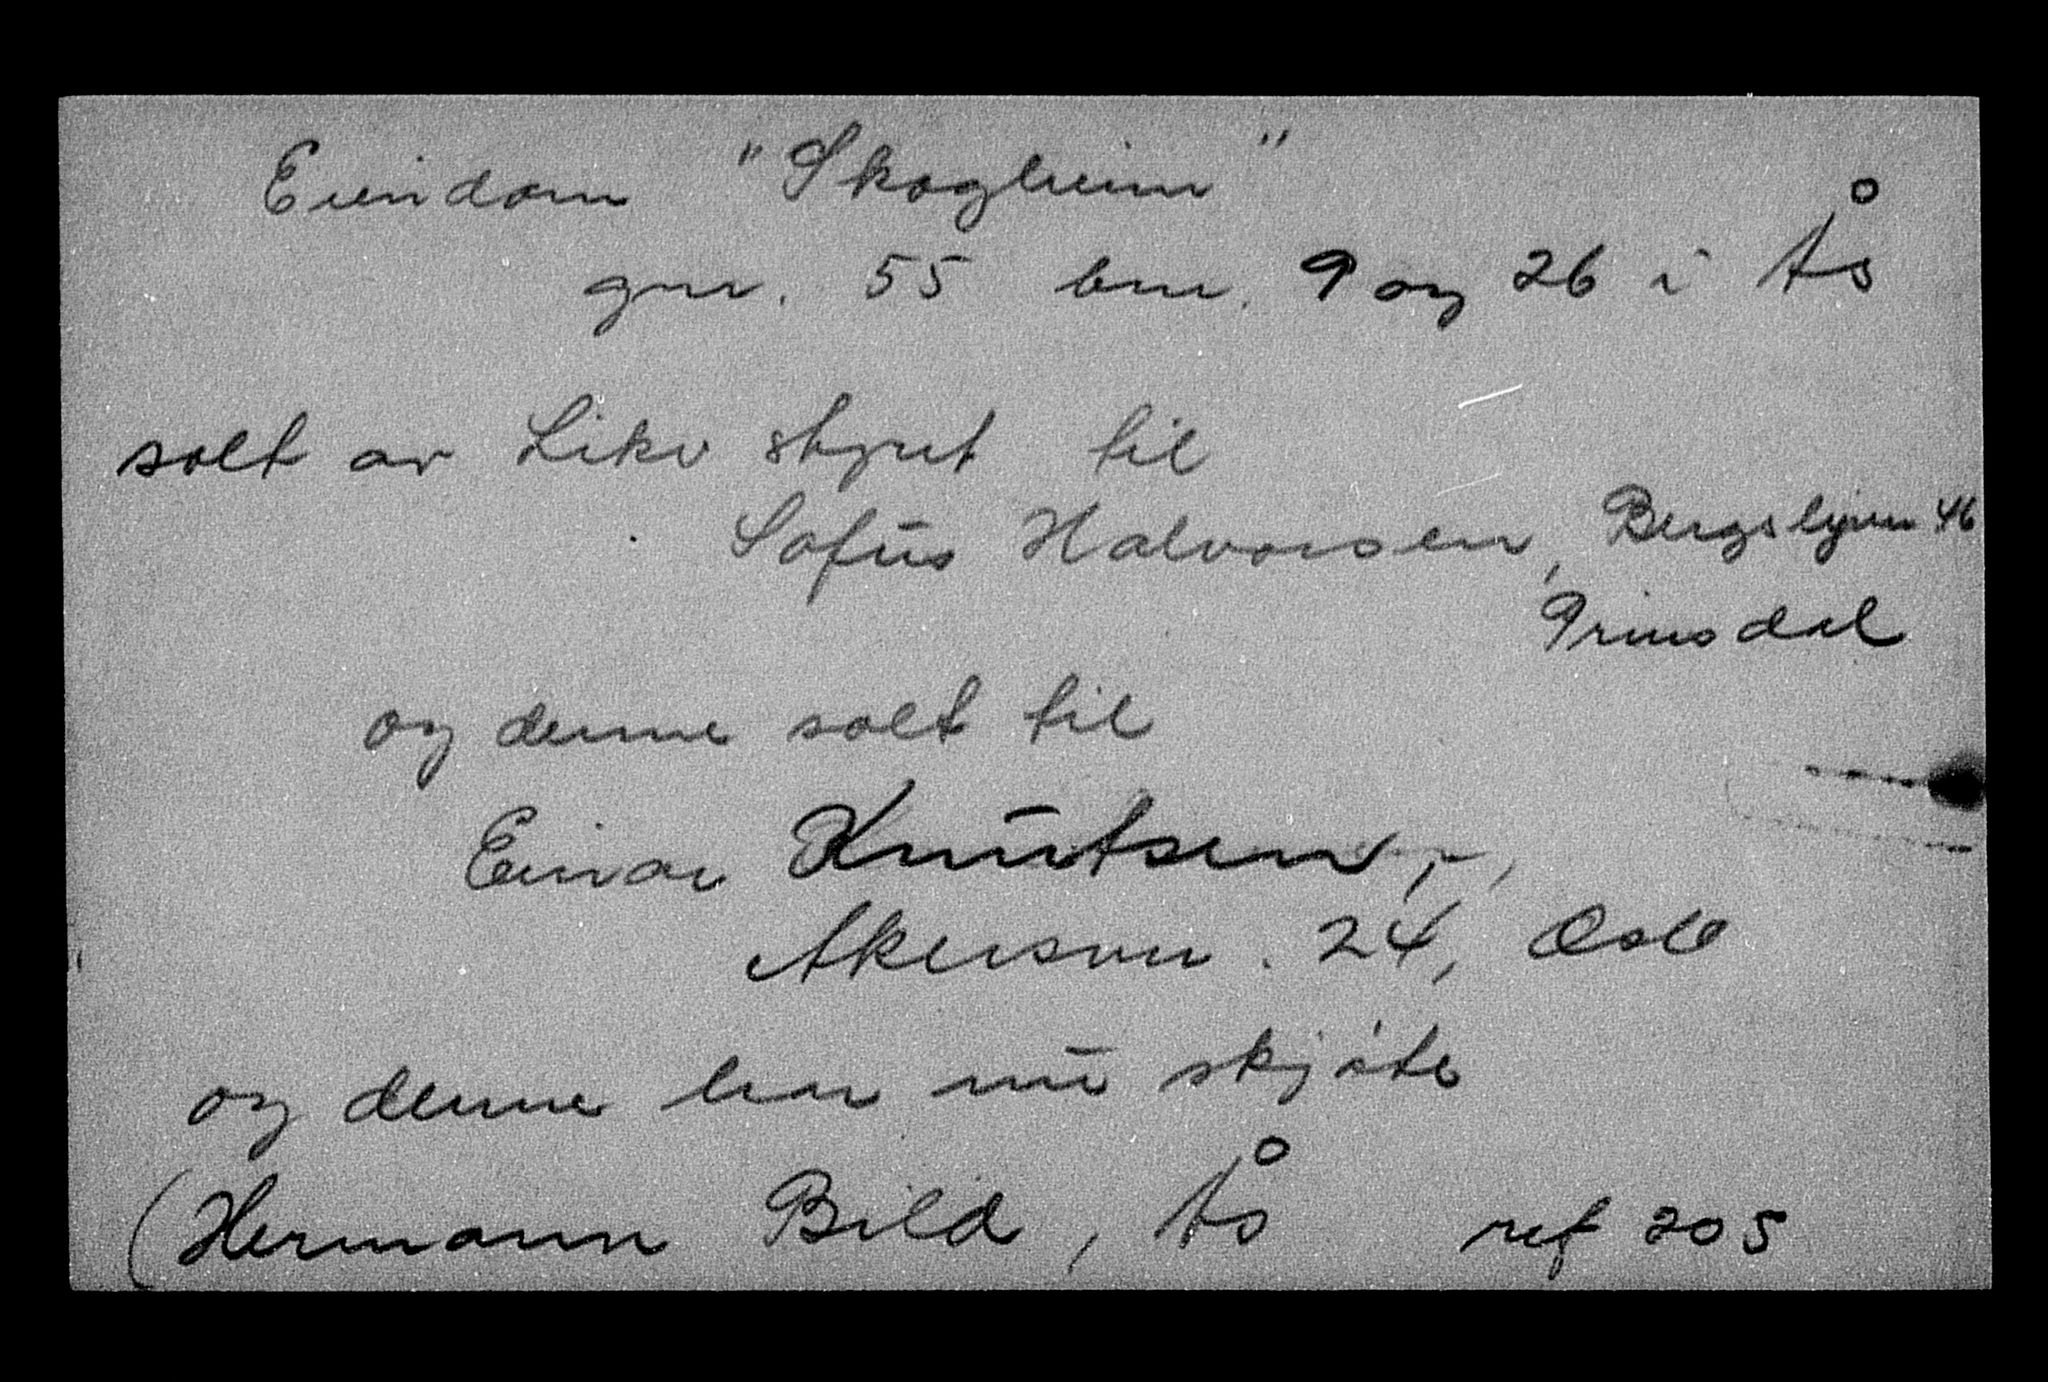 Eiendom "Skogheim"
gnr. 55 bnr. 9 og 26 i Ås
solt av Likv styret til
Sofus Halvorsen, Bergslyven 46
Prinsdal
og denne solt til
Einar Knutsen,
Akersvn. 24, Oslo
og denne har nu skjøte
(Hermann Bild, Ås ref 205